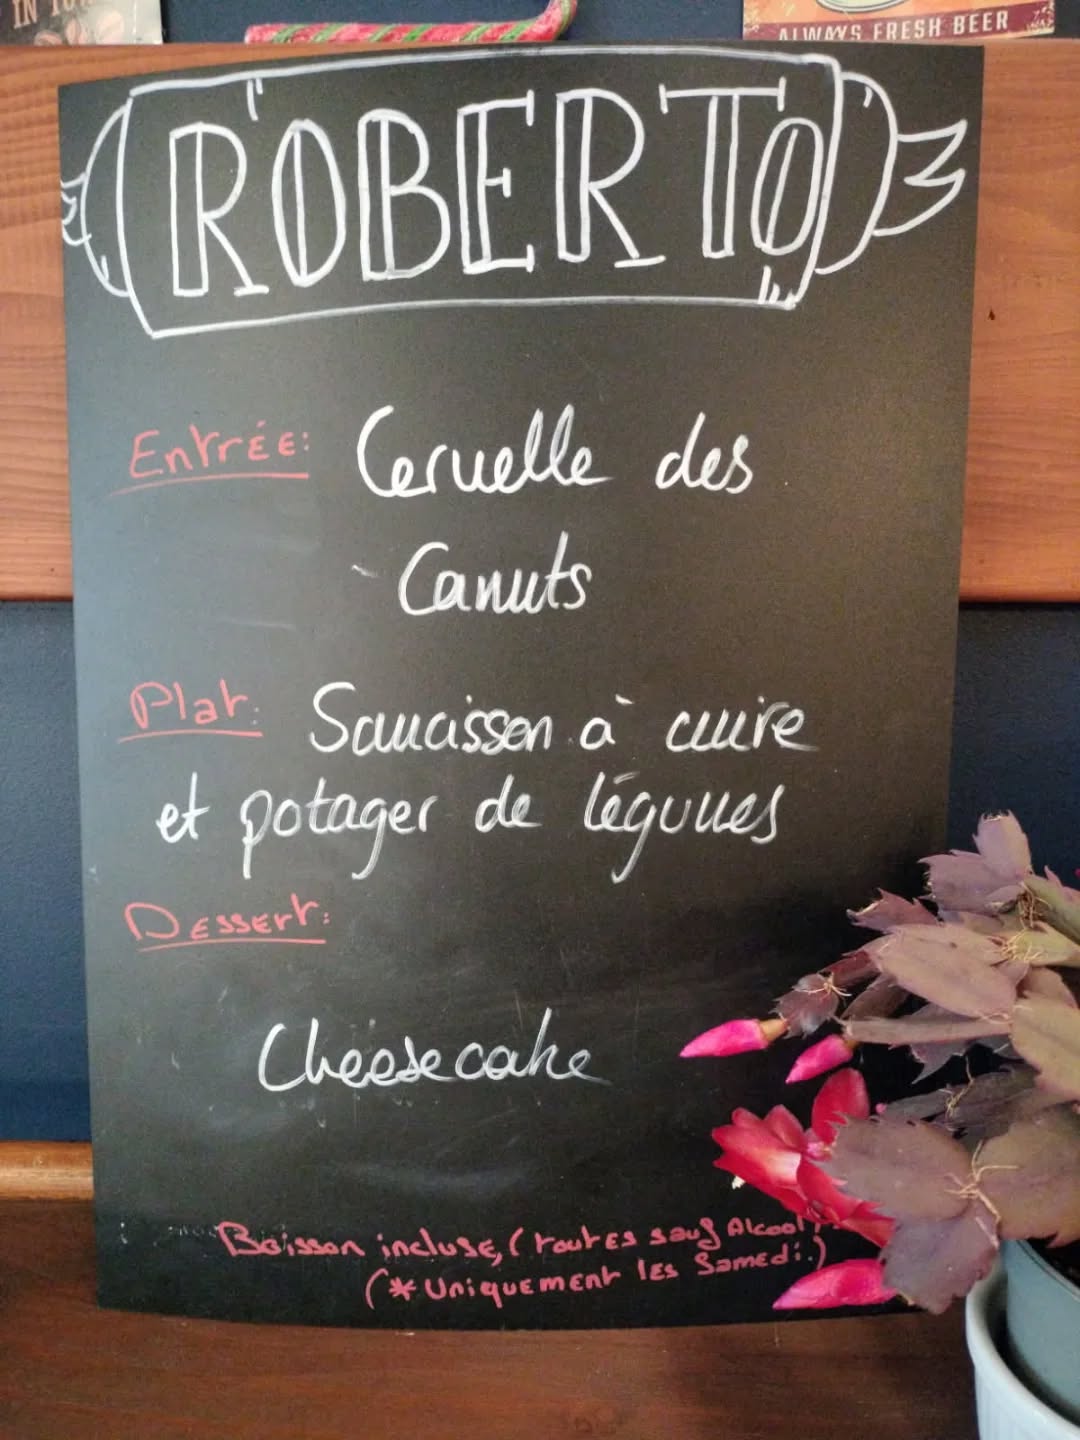 IN TO
ALWAYS FRESH BEER
ROBERTO
Entrée: Cervelle des
Canuts
Plat: Saucisson à cuire
et potager de légumes
Dessert:
Cheesecake
Boisson incluse, (toutes sauf Alcool)
(*Uniquement les Samedi.)